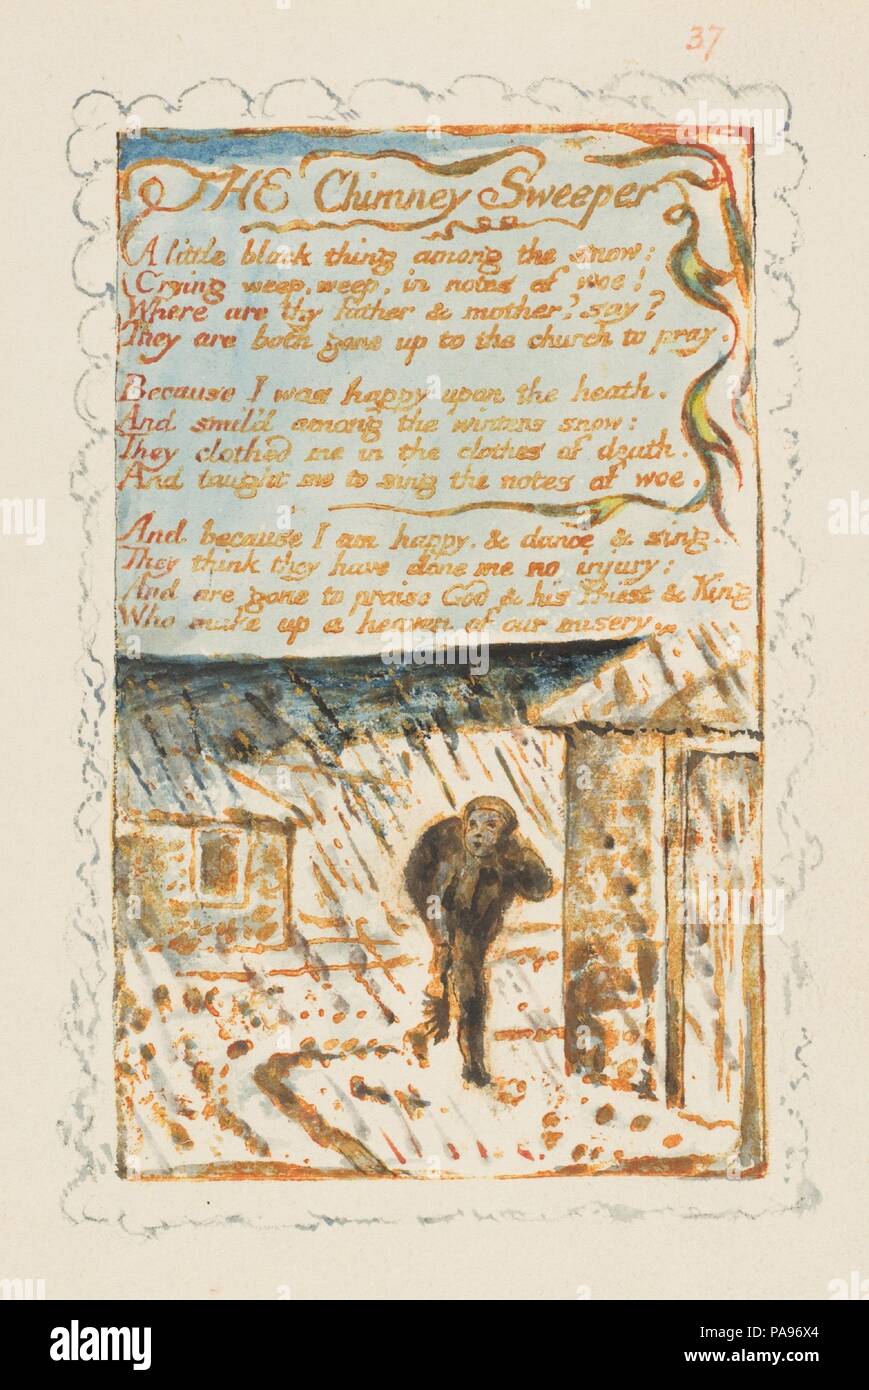 37
THE Chimney Sweeper
A little black thing among the snow:
Crying weep, weep, in notes of woe!
Where are thy father & mother? say?
They are both gone up to the church to pray.
Because I was happy upon the heath.
And smil'd among the winters snow:
They clothed me in the clothes of death.
And taught me to sing the notes of woe.
And because I am happy. & dance & sing.
They think they have done me no injury:
And are gone to praise God & his Priest & King
Who make up a heaven of our misery.
alamy
Image ID: PA96X4
www.alamy.com